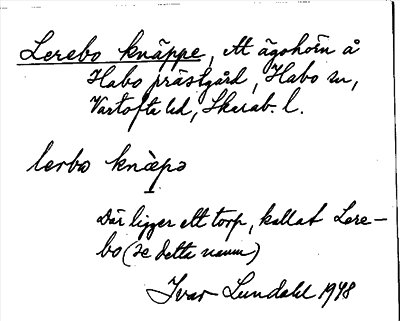 Lerebo knäppe, ett ägohörn å
Habo prästgård, Habo sn,
Vartofta hd, Skarab. l.
lerbə knæpə
Där ligger ett torp, kallat Lere-
bo (se detta namn)
Ivar Lundahl 1948